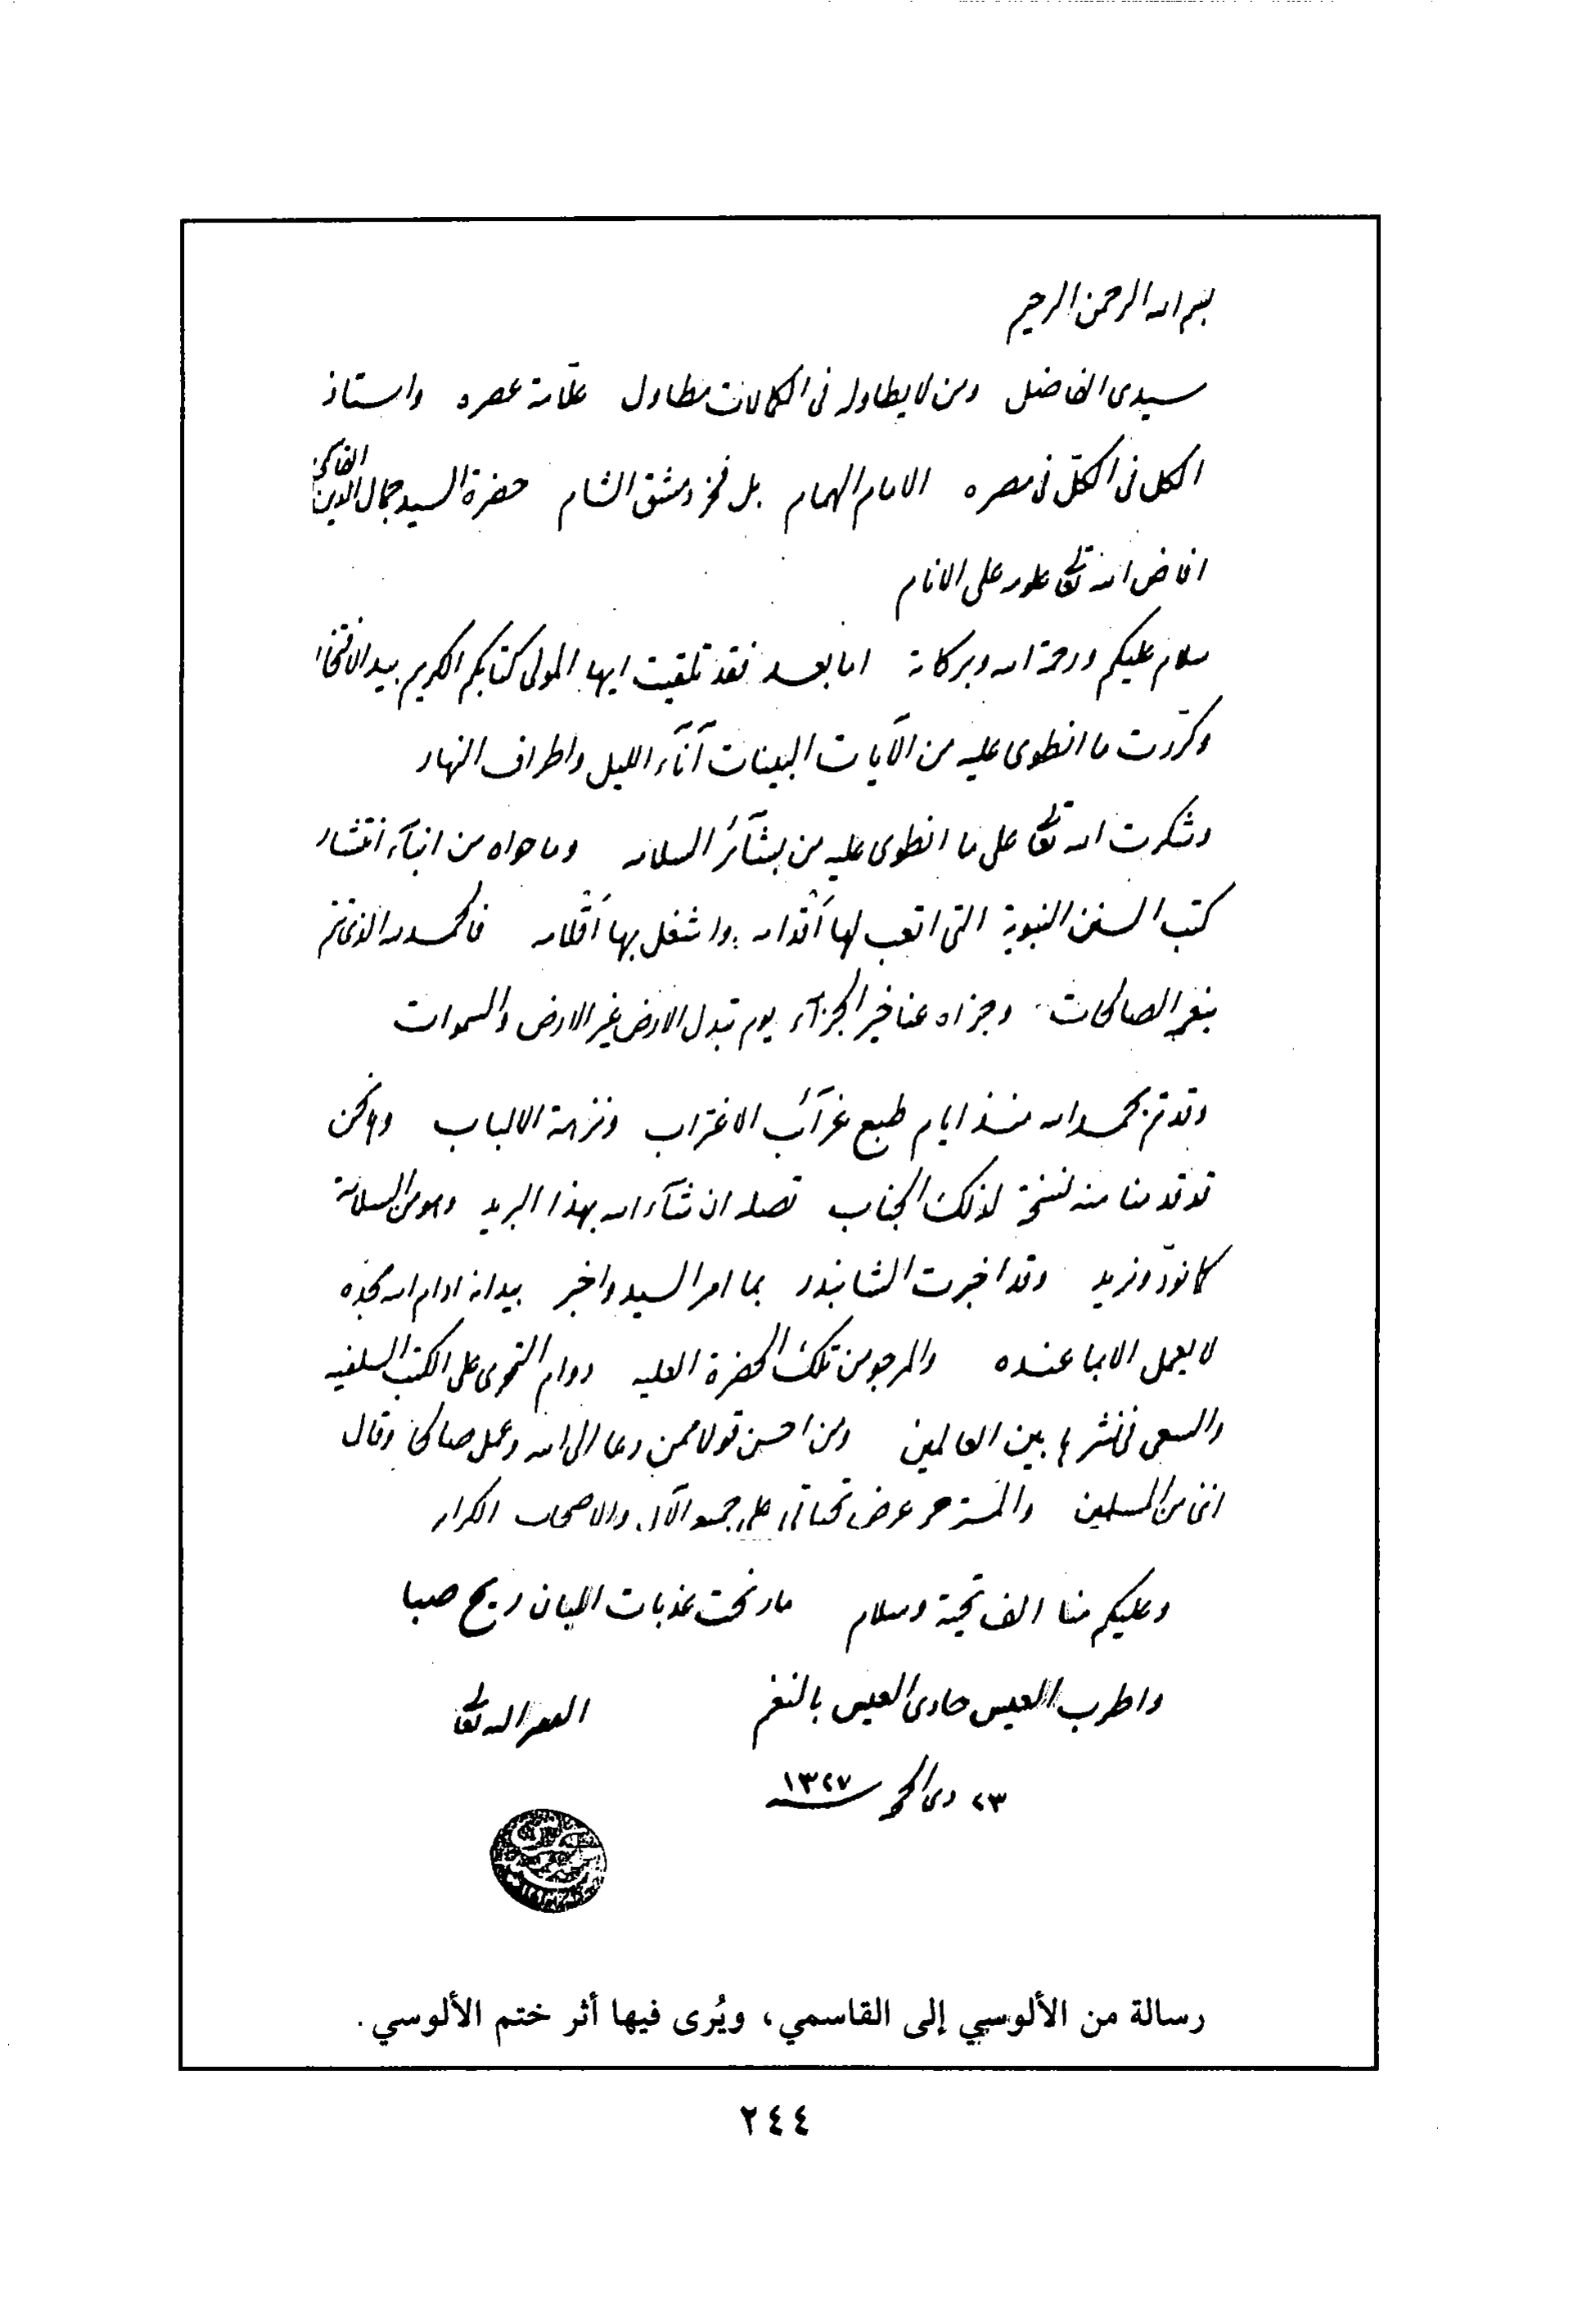 بسم الله الرحمن الرحيم
سيدى الفاضل ومن لا يطاوله فى الكمالات مطاول علّامة عصره واستاذ
الكل فى الكلّ فى مصره الامام الهمام بل فخر دمشق الشام حضرة السيد جمال الدين القاسمى
افاض الله تعالى علومه على الانام
سلام عليكم ورحمة الله وبركاته اما بعد فقد تلقيت ايها المولى كتابكم الكريم بيد الافتخار
وكرّرت ما انطوى عليه من الآيات البينات آنآء الليل واطراف النهار
وشكرت الله تعالى على ما انطوى عليه من بشآئر السلامه وما حواه من انبآء انتشار
كتب السنن النبوية التى اتعب لها أقدامه واشغل بها أقلامه فالحمد لله الذى تتم
بنعمه الصالحات وجزاه عنا خير الجزآء يوم تبدل الارض غير الارض والسموات
وقد تم بحمد الله منذ ايام طبع غرآئب الاغتراب ونزهة الالباب وها نحن
قد قدمنا منه نسخة لذلك الجناب تصله ان شآء الله بهذا البريد وهو من السلامة
كما نودّ ونريد وقد اخبرت الشابندر بما امر السيد واخبر بيد انه ادام الله مجده
لا يعمل الا بما عنده والمرجو من تلك الحضرة العليه دوام التحرى على الكتب السلفيه
والسعى فى نشرها بين العالمين ومن احسن قولا ممن دعا الى الله وعمل صالحا وقال
اننى من المسلمين والمسترحم عرض تحياتى على جميع الآل والاصحاب الكرام
وعليكم منا الف تحية وسلام ما رنحت عذبات البان ريح صبا
واطرب العيس حادى العيس بالنغم الفقير اليه تعالى
٢٣ ذى الحجة سنة ١٣٢٧
رسالة من الألوسي إلى القاسمي، ويُرى فيها أثر ختم الألوسي.
٢٤٤